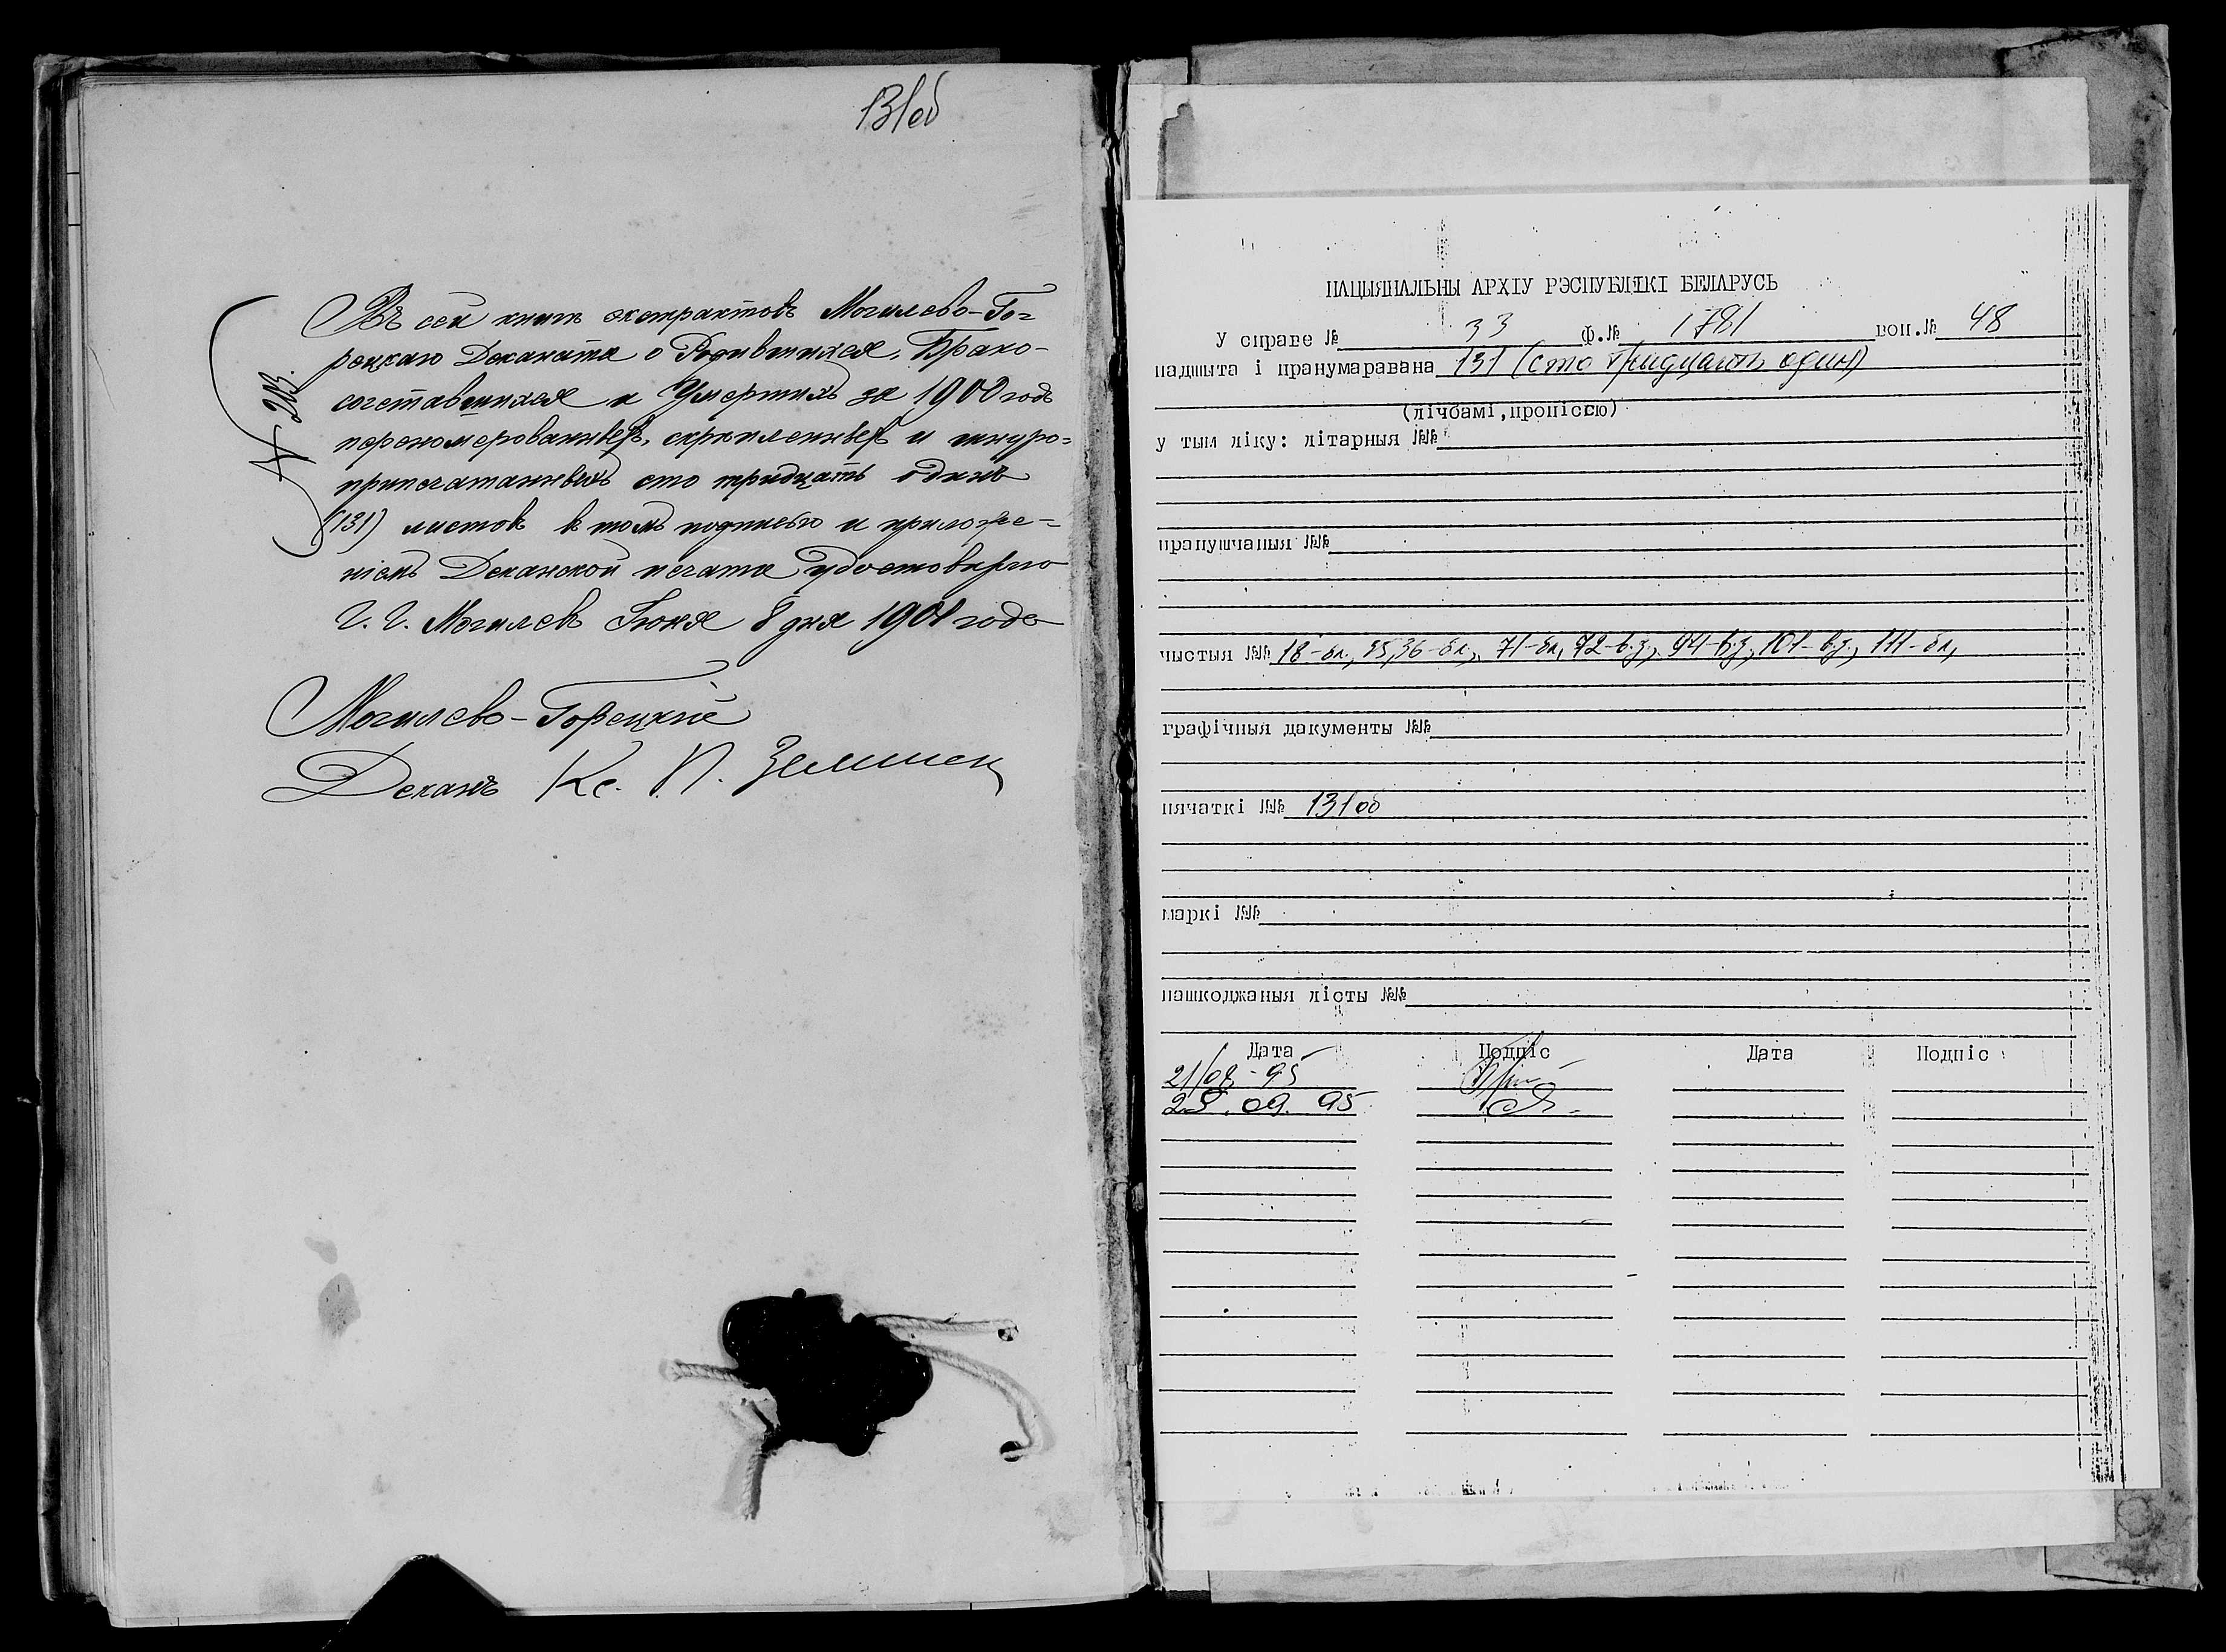 131об
№ 213.
Въ сей книгѣ экстрактовъ Могилево-Го=
рецкаго Деканата о Родившихся, Брако-
сочетавшихся и Умершихъ за 1900 годъ
перенумерованныхъ, скрѣпленныхъ и шнуро=
припечатанныхъ сто тридцать одинъ
(131) листовъ в томъ подписью и приложе=
ніемъ Деканской печати удостовѣряю
Г. Г. Могилевъ Іюня 8 дня 1901 года
Могилево-Горецкій
Деканъ Кс. П.
НАЦЫЯНАЛЬНЫ АРХІУ РЭСПУБЛІКІ БЕЛАРУСЬ
У справе № 33 Ф.№ 1781 воп.№ 48
падшыта і пранумаравана 131 (сто тридцать один)
(лічбамі, пропіссю)
у тым ліку: літарныя №№
прапушчаныя №№
чыстыя №№ 18-бл., 35,36-бл., 71-бл, 72-в.з., 94-в.з., 101-в.з., 111-бл,
графічныя дакументы №№
пячаткі №№ 131об
маркі №№
пашкоджаныя лісты №№
Дата Подпіс Дата Подпіс
21/09-95
25.09.95